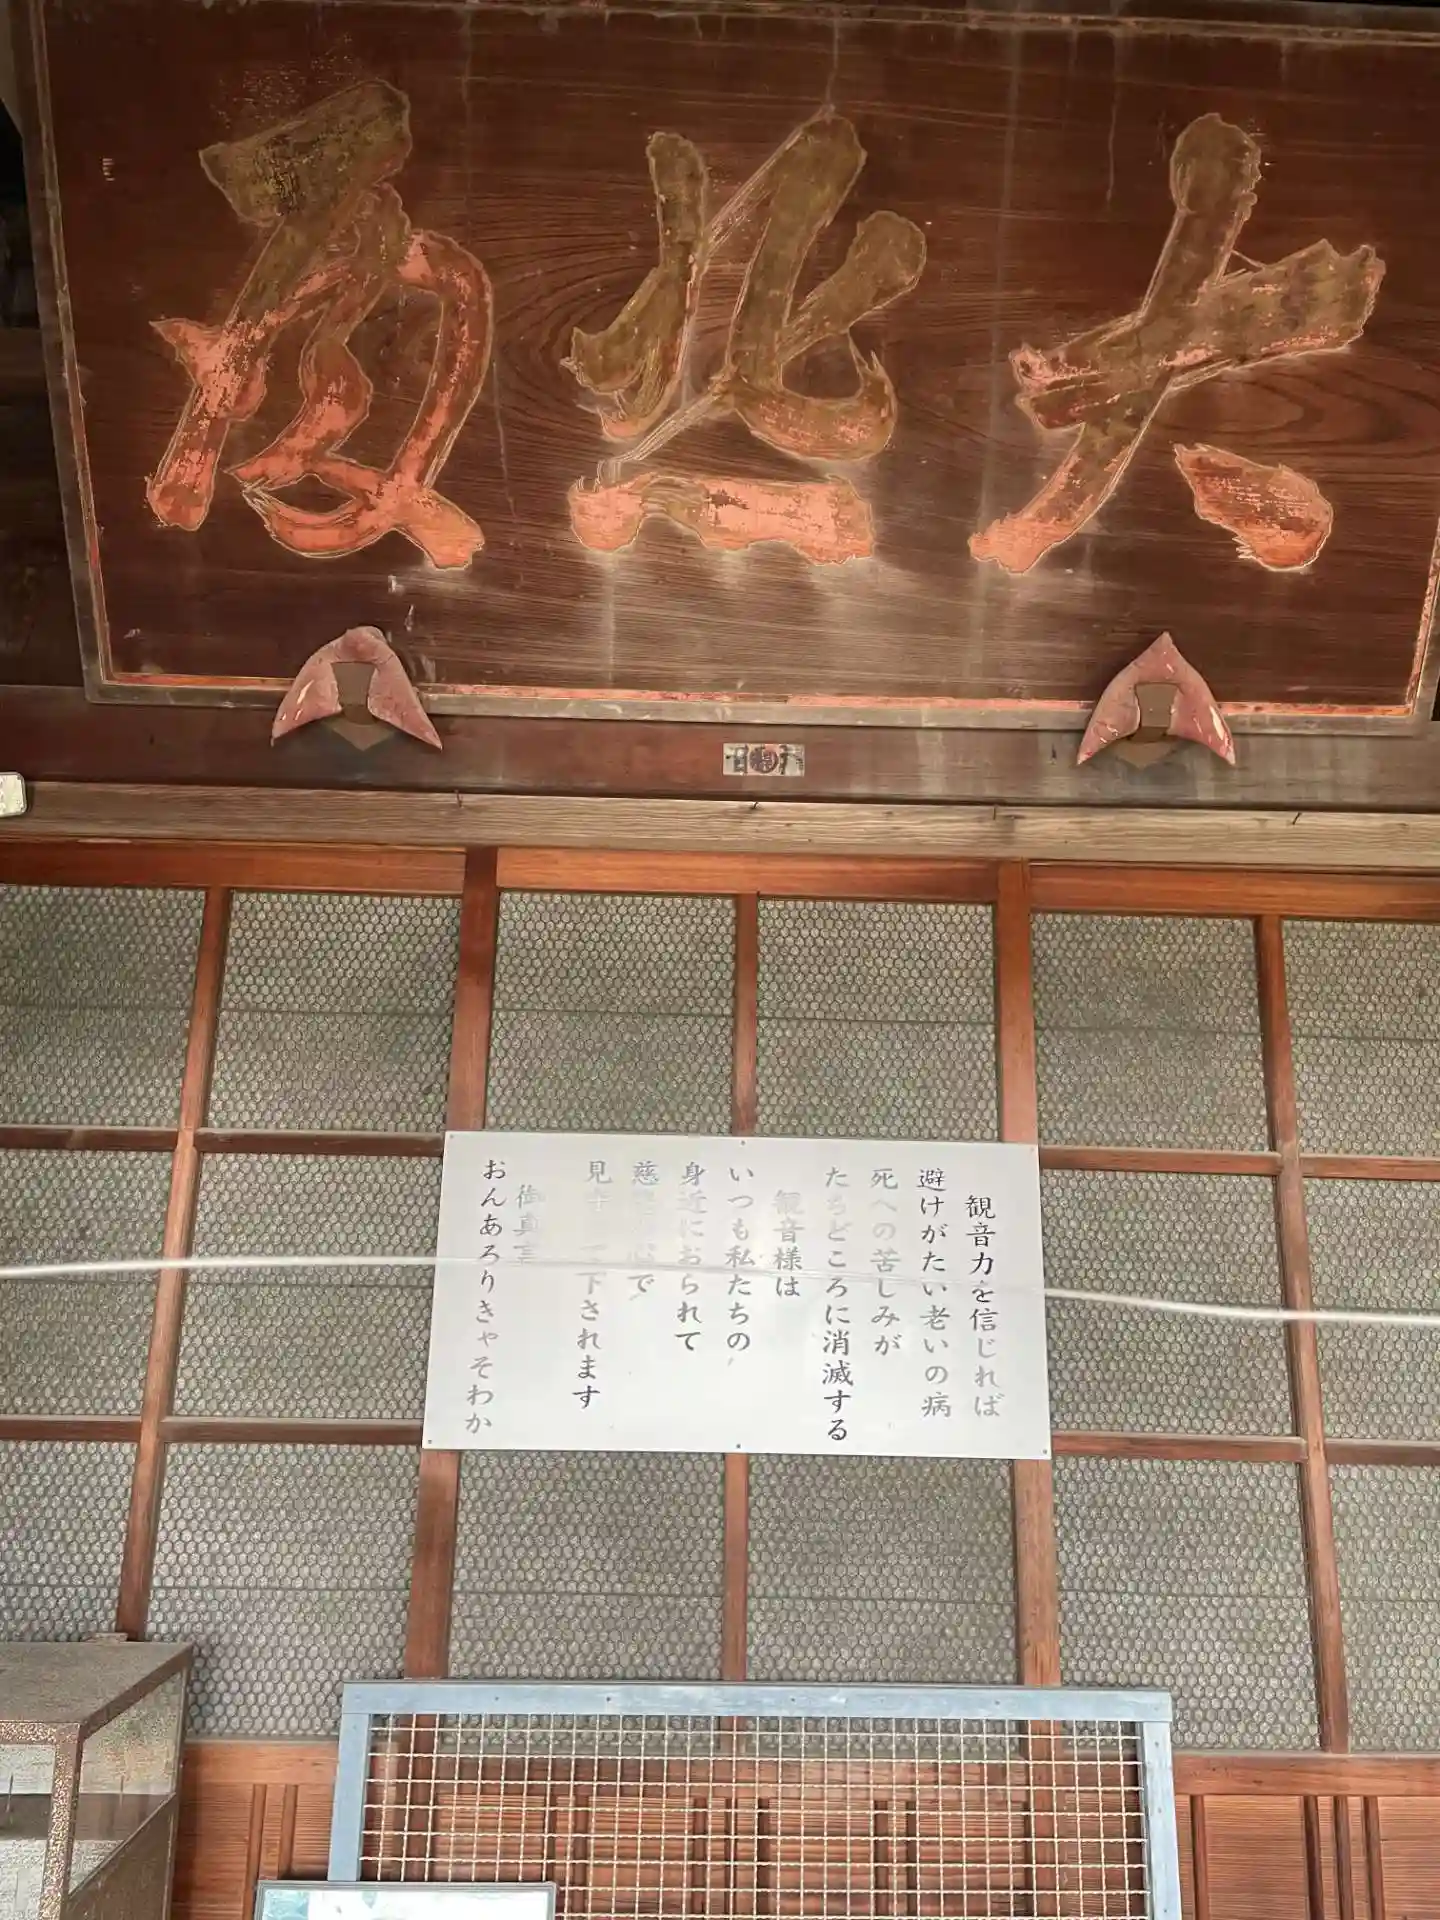 大悲殿
観音力を信じれば
避けがたい老いの病
死への苦しみが
たちどころに消滅する
観音様は
いつも私たちの
身近におられて
慈 心で
見守って下されます
御真言
おんあろりきゃそわか